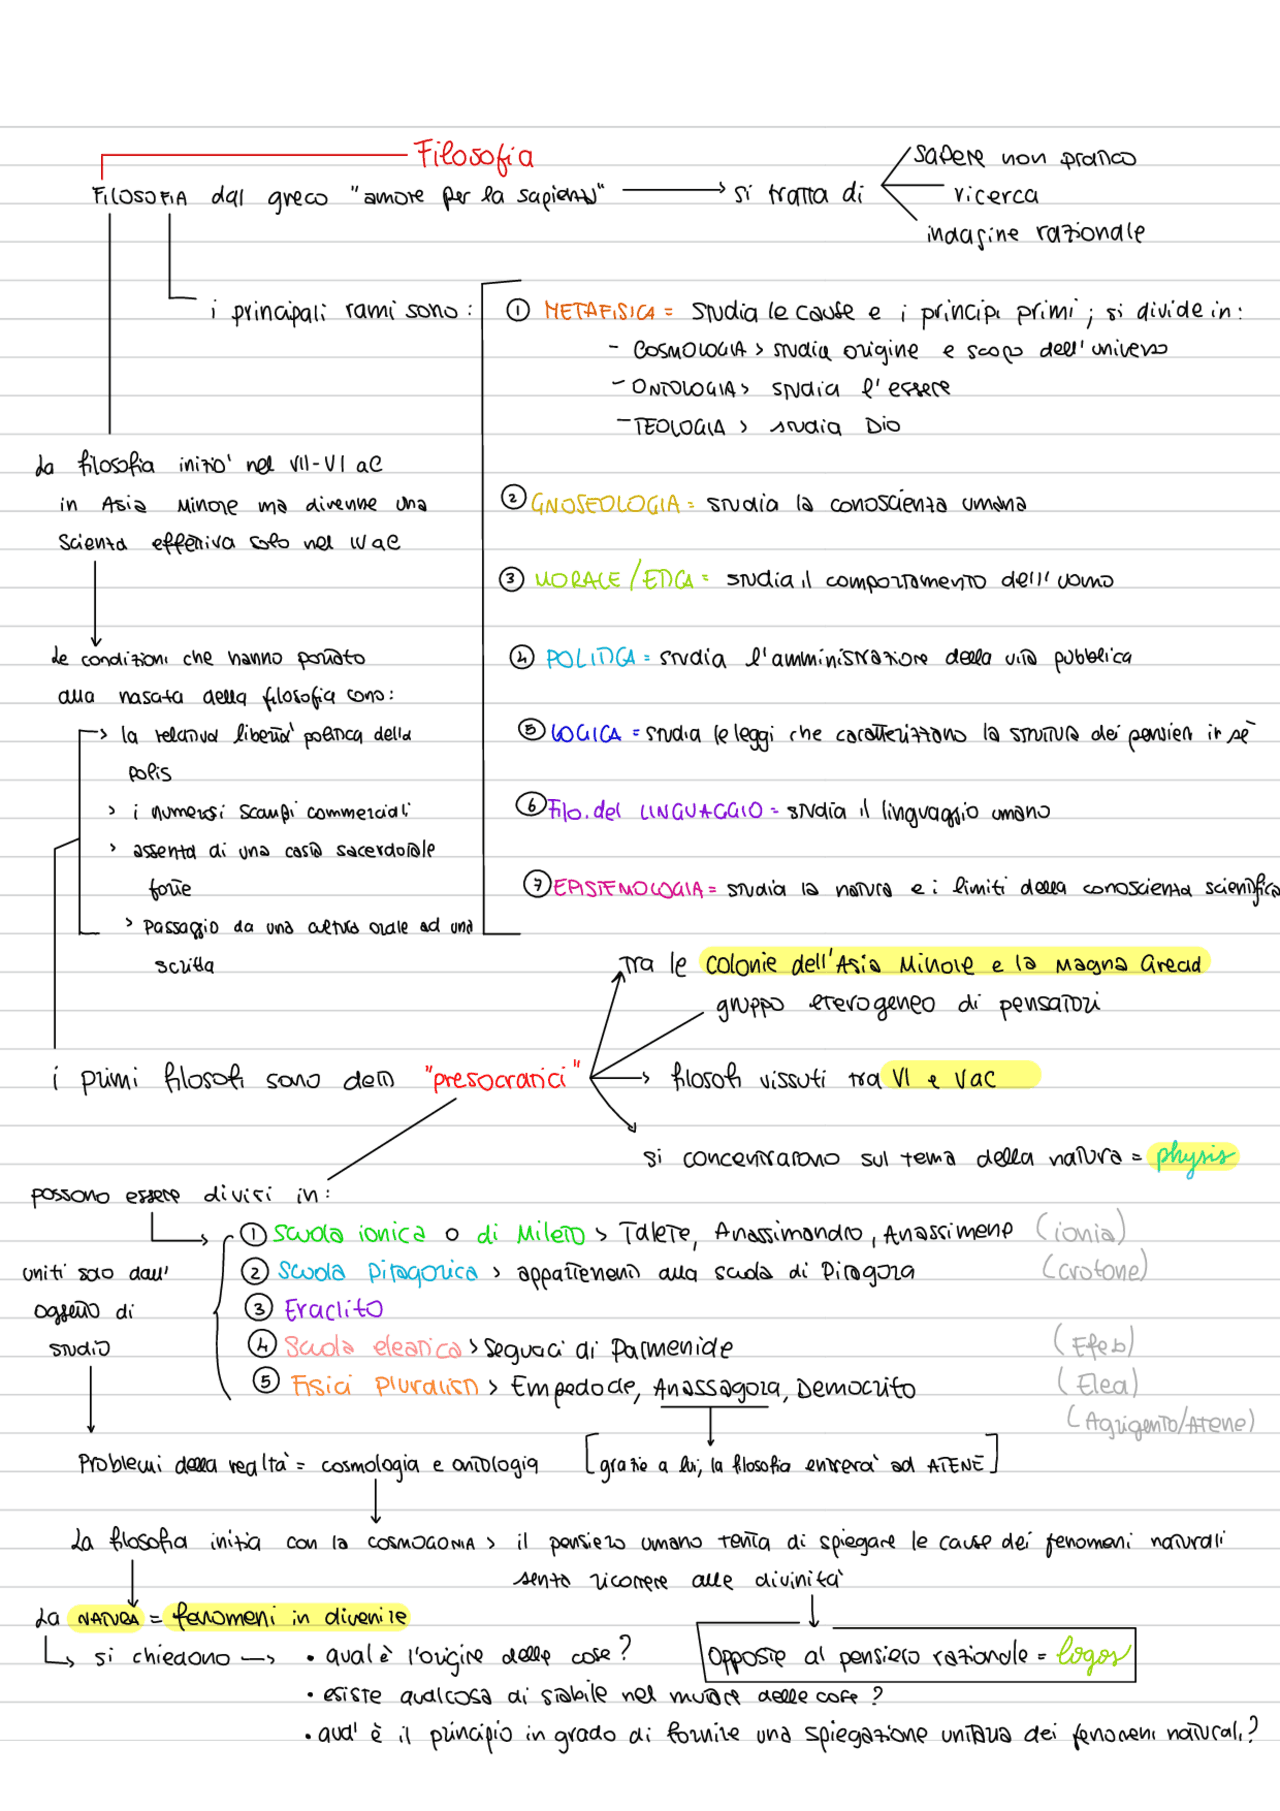 Filosofia
FILOSOFIA dal greco "amore per la sapienza" → si tratta di
sapere non pratico
ricerca
indagine razionale
i principali rami sono:
① METAFISICA = studia le cause e i principi primi ; si divide in:
- COSMOLOGIA > studia origine e scopo dell'universo
- ONTOLOGIA > studia l'essere
- TEOLOGIA > studia Dio
② GNOSEOLOGIA = studia la conoscienza umana
③ MORALE / ETICA = studia il comportamento dell'uomo
④ POLITICA = studia l'amministrazione della vita pubblica
⑤ LOGICA = studia le leggi che caratterizzano la struttura dei pensieri in sè
⑥ Filo. del LINGUAGGIO = studia il linguaggio umano
⑦ EPISTEMOLOGIA = studia la natura e i limiti della conoscienza scientifica
La filosofia iniziò nel VII-VI aC
in Asia Minore ma divenne una
scienza effettiva solo nel IV aC
Le condizioni che hanno portato
alla nascata della filosofia sono:
> la relativa libertà politica della
polis
> i numerosi scambi commerciali
> assenza di una casta sacerdotale
forte
> passaggio da una cultura orale ad una
scritta
tra le colonie dell'Asia Minore e la Magna Grecia
gruppo eterogeneo di pensatori
i primi filosofi sono detti "presocratici" → filosofi vissuti tra VI e V aC
si concentrarono sul tema della natura = physis
possono essere divisi in:
① Scuola ionica o di Mileto > Talete, Anassimandro, Anassimene (ionia)
② Scuola Pitagorica > appartenenti alla scuola di Pitagora (crotone)
③ Eraclito
④ Scuola eleatica > seguaci di Parmenide (Efeb)
⑤ Fisici Pluralisti > Empedocle, Anassagora, Democrito (Elea)
(Agrigento/Atene)
uniti solo dall'
oggetto di
studio
Problemi della realtà = cosmologia e ontologia [grazie a lui, la filosofia entrerà ad ATENE]
La filosofia inizia con la COSMOGONIA > il pensiero umano tenta di spiegare le cause dei fenomeni naturali
senza ricorrere alle divinità
La NATURA = fenomeni in divenire
opposte al pensiero razionale = logos
si chiedono → • qual è l'origine delle cose?
• esiste qualcosa di stabile nel mutare delle cose ?
• qual' è il principio in grado di fornire una spiegazione unitaria dei fenomeni naturali?